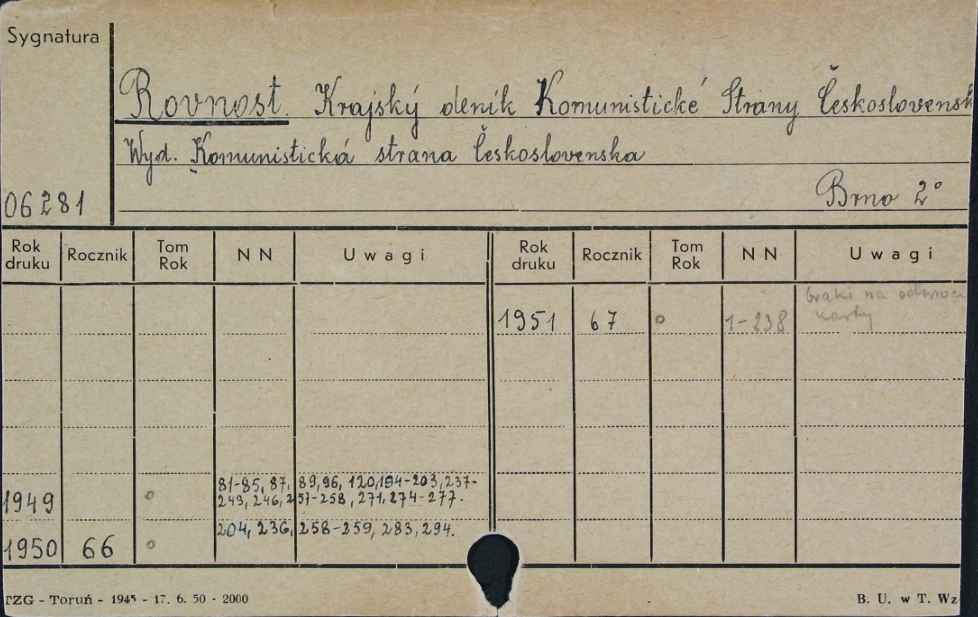 Sygnatura
Rovnost. Krajský deník Komunistické Strany Československ
Wyd. Komunistická strana Československa
06281
Brno 2°
Rok druku Rocznik Tom Rok NN Uwagi Rok druku Rocznik Tom Rok NN Uwagi
braki na odwrocie
1951 67 ° 1-238 karty
81-85, 87, 89, 96, 120, 194-203, 237-
1949 ° 243, 246, 257-258, 271, 274-277.
204, 236, 258-259, 283, 294.
1950 66 °
TZG - Toruń - 1945 - 17. 6. 50 - 2000
B. U. w T. Wz